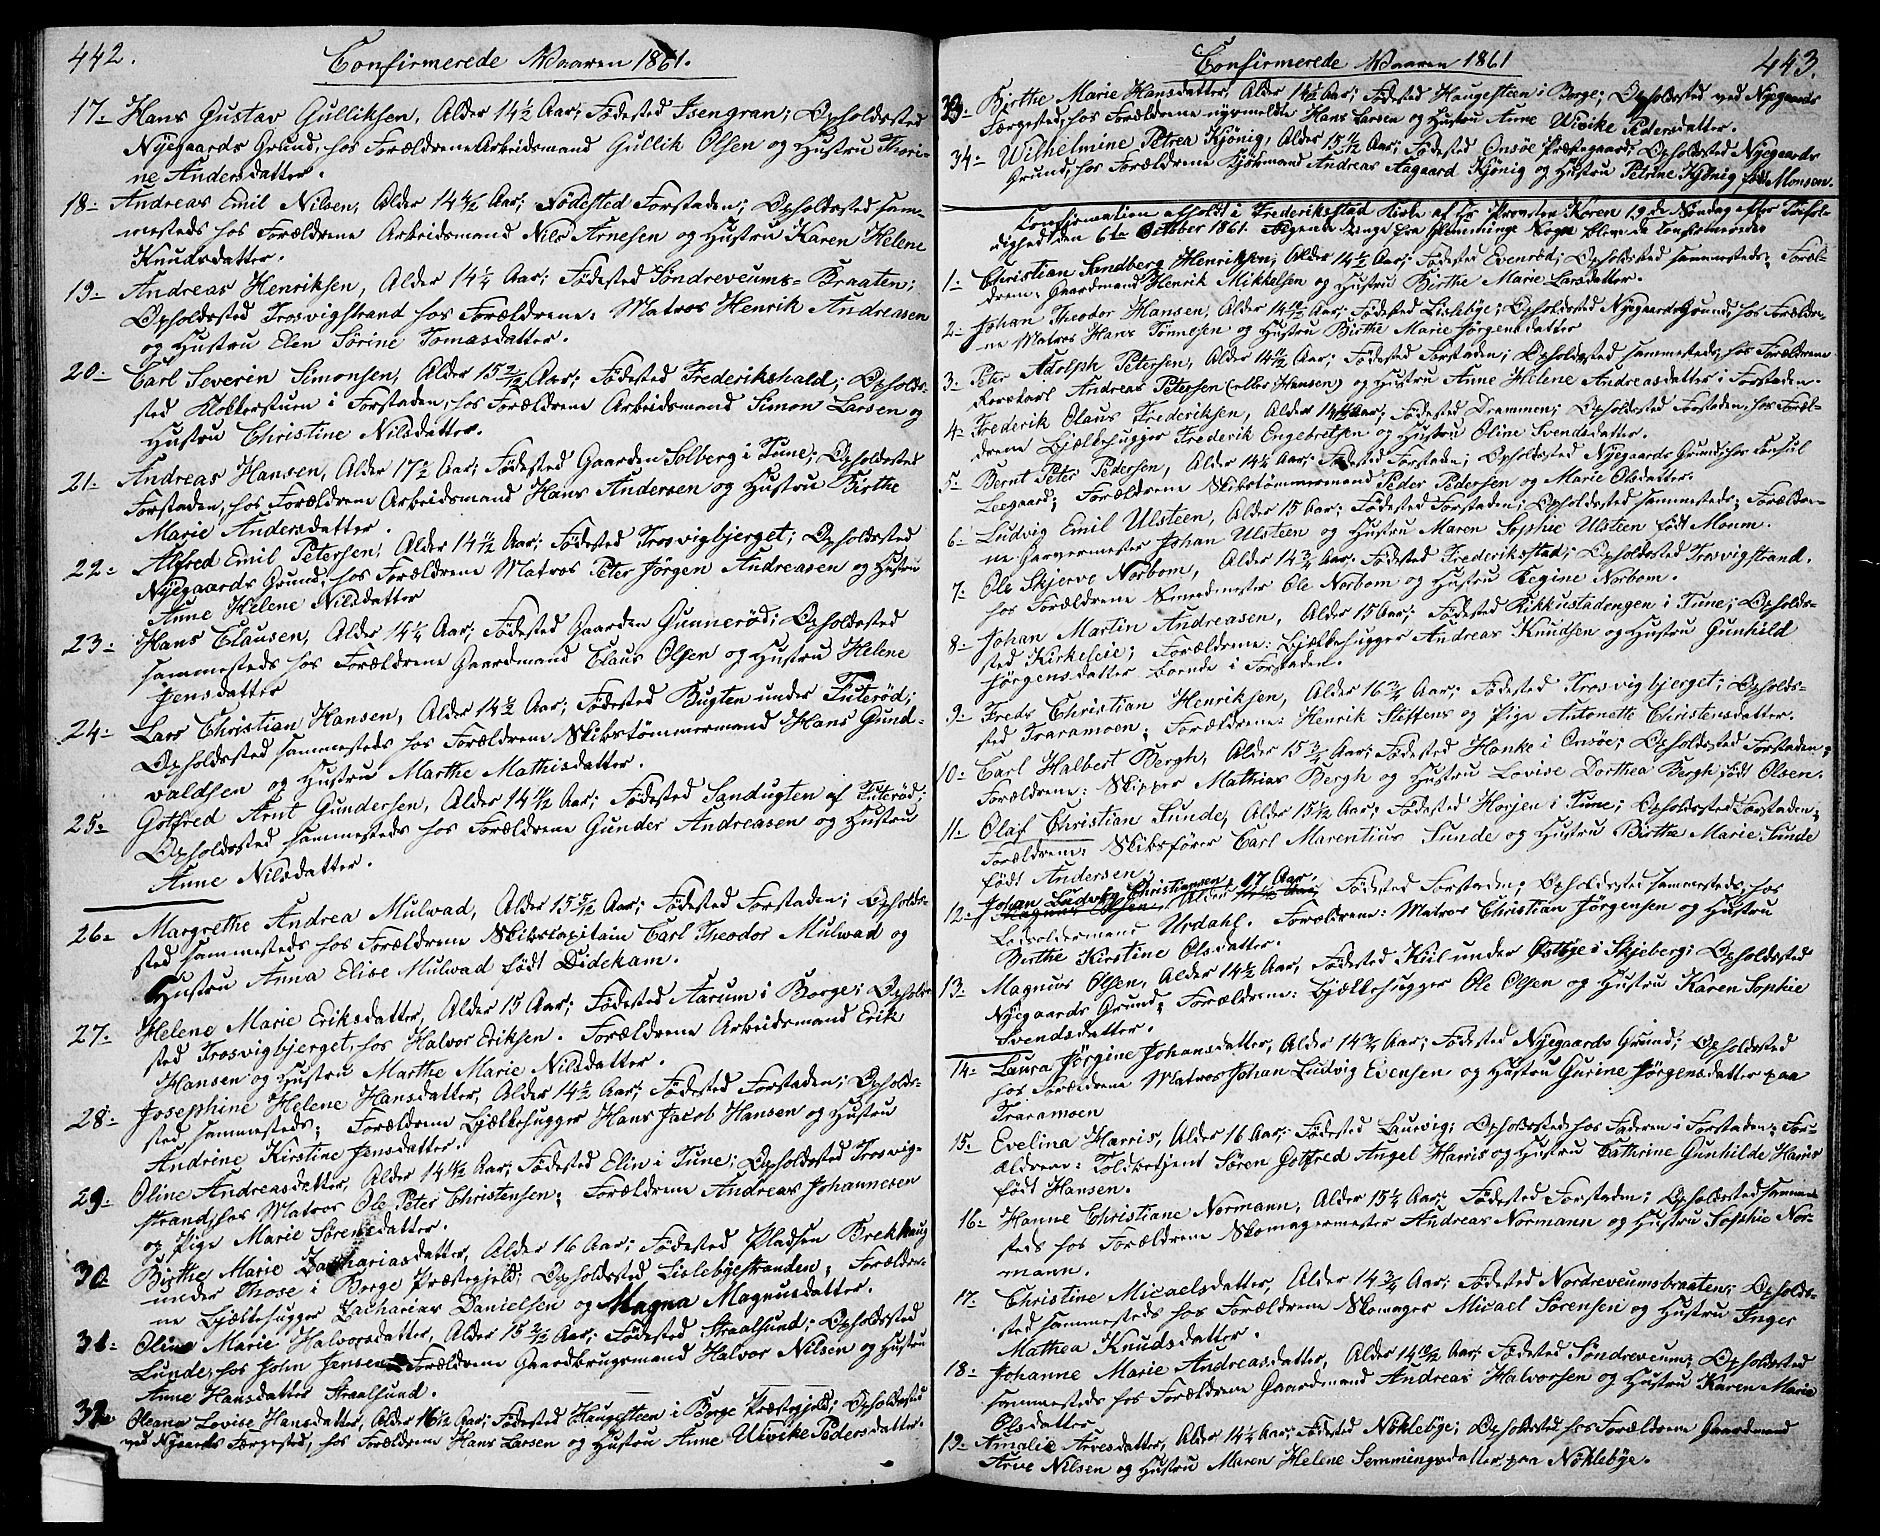 442.
Confirmerede Vaaren 1861.
17- Hans Gustav Gulliksen, Alder 14½ Aar; Fødested Isengran; Opholdssted
Nyegaards Grund, hos Forældrene Arbeidsmand Gullik Olsen og Hustru Thori-
ne Andersdatter.
18- Andreas Emil Nilsen, Alder 14 Aar; Fødested Forstaden; Opholdssted sam-
mesteds hos Forældrene Arbeidsmand Nils Arnesen og Hustru Karen Helene
Knudsdatter.
19- Andreas Henriksen, Alder 14½ Aar; Fødested Søndreveums-Braaten;
Opholdssted Trosvigstrand hos Forældrene: Matros Henrik Andreasen
og Hustru Elen Sørine Tomasdatter.
20- Carl Severin Simonsen, Alder 15 2/12 Aar; Fødested Frederikshald; Opholds-
sted Klokkersturn i Forstaden, hos Forældrene Arbeidsmand Simon Larsen og
Hustru Christine Nilsdatter.
21- Andreas Hansen, Alder 17½ Aar; Fødested Gaarden Solberg i Tune; Opholdssted
Forstaden, hos Forældrene Arbeidsmand Hans Andersen og Hustru Birthe
Marie Andersdatter.
22- Alfred Emil Petersen, Alder 14 Aar; Fødested Trosvigbjerget; Opholdssted
Nyegaards Grund, hos Forældrene Matros Peter Jørgen Andreasen og Hustru
Anne Helene Nilsdatter
23- Hans Clausen, Alder 14¼ Aar; Fødested Gaarden Gunnerød; Opholdssted
sammesteds hos Forældrene Gaardmand Claus Olsen og Hustru Helene
Jensdatter
24- Lars Christian Hansen, Alder 14½ Aar; Fødested Bugten under Futerød;
Opholdssted sammesteds hos Forældrene Skibstømmermand Hans Gund-
valdsen og Hustru Marthe Mathisdatter.
25- Gotfred Arnt Gundersen, Alder 14 Aar; Fødested Sandugten af Futerød;
Opholdssted sammesteds hos Forældrene Gunder Andreasen og Hustru
Anne Nilsdatter.
26- Margrethe Andrea Mulwad, Alder 15 5/12 Aar; Fødested Forstaden; Opholds-
sted sammesteds hos Forældrene Skibskapitain Carl Theodor Mulwad og
Hustru Anna Elise Mulwad født Didekam.
27- Helene Marie Eriksdatter, Alder 15 Aar; Fødested Aarum i Borge; Ophold-
sted Trosvigbjerget, hos Halvor Eriksen. Forældrene Arbeidsmand Erik
Hansen og Hustru Marthe Marie Nilsdatter.
28- Josephine Helene Hansdatter, Alder 14½ Aar; Fødested Forstaden; Opholds-
sted sammesteds; Forældrene Bjelkehugger Hans Jacob Hansen og Hustru
Andrine Kirstine Jensdatter.
29- Oline Andreasdatter, Alder 14 Aar; Fødested Elin i Tune; Opholdssted Trosvig-
strand, hos Matros Ole Peter Christensen; Forældrene Andreas Johannesen
og Pige Marie Sørensdatter.
30 Birthe Marie Zachariasdatter, Alder 16 Aar; Fødested Pladsen Brekhaug
under Those i Borge Præstegjeld; Opholdssted Lislebyestranden; Forældre-
ne Bjelkehugger Zacharias Danielsen og Magna Magnusdatter.
31- Oline Marie Halvorsdatter, Alder 15 2/12 Aar; Fødested Straalsund; Opholdssted
Lunde, hos John Jensen Forældrene Gaardbrugsmand Halvor Nilsen og Hustru
Anne Hansdatter Straalsund.
32 Oleana Lovise Hansdatter, Alder 16½ Aar; Fødested Haugesteen i Borge Præstegjeld; Opholdssted
ved Nygaards Færgested, hos Forældrene Hans Larsen og Hustru Anne Wivike Pedersdatter.
443.
Confirmerede Vaaren 1861
33- Birthe Marie Hansdatter, Alder 14½ Aar; Fødested Haugesteen i Borge; Opholdssted ved Nyegaards
Færgested, hos Forældrene nysmeldte Hans Larsen og Hustru Anne Wivike Pedersdatter.
34- Wilhelmine Petrea Kjönig, Alder 15 Aar; Fødested Onsøe Præstegaard; Opholdssted Nyegaards
Grund, hos Forældrene Kjørmand Andreas Aagaard Kjönig og Hustru Petrine Kjönig født Monsen.
Konfirmation afholdt i Frederikstad Kirke af Hr Provsten Koren 19de Søndag efter Trefol-
dighed den 6te October 1861. Følgende Unge fra Glemminge Sogn bleve da konfirmerede
1- Christian Sandberg Henriksen, Alder 14½ Aar; Fødested Evenrød; Opholdssted sammesteds; Foræl-
drene, Gaardmand Henrik Mikkelsen og Hustru Birthe Marie Larsdatter.
2- Johan Theodor Hansen, Alder 14 Aar; Fødested Lislebye; Opholdssted Nyegaards Grund, hos Forældre-
ne Matros Hans Tønnesen og Hustru Birthe Marie Jørgensdatter
3- Peter Adolph Petersen, Alder 14 Aar; Fødested Forstaden; Opholdssted sammesteds, hos Forældrene
Rorskarl Andreas Petersen (elder Hansen) og Hustru Anne Helene Andreasdatter i Forstaden.
4- Frederik Olaus Frederiksen, Alder 14 Aar; Fødested Drammen; Opholdssted Forstaden, hos Foræl-
drene Bjelkehugger Frederik Engebretsen og Hustru Oline Svendsdatter.
5- Bernt Peter Pedersen, Alder 14½ Aar; Fødested Forstaden; Opholdssted Nyegaards Grund, hos Consul
Leegaard; Forældrene Skibstømmermand Peder Pedersen og Marie Olsdatter.
6- Ludvig Emil Ulsteen, Alder 15 Aar; Fødested Forstaden; Opholdssted sammesteds; Forældre-
ne Garvermester Johan Ulsteen og Hustru Maren Sophie Ulsteen født Momm.
7- Ole Skjerve Norbom, Alder 14¾ Aar; Fødested Frederikstad; Opholdssted Trosvigstrand,
hos Forældrene Snedmester Ole Norbom og Hustru Regine Norbom.
8- Johan Martin Andreasen, Alder 15 Aar; Fødested Rikkustadengen i Tune; Opholds-
sted Kirkeseie; Forældrene: Bjelkehugger Andreas Knudsen og Hustru Gunhild
Jørgensdatter boende i Forstaden.
9- Freds Christian Henriksen, Alder 16¾ Aar; Fødested Trosvigbjerget; Opholds-
sted Traramoen; Forældrene: Henrik Steffens og Pige Antonette Christensdatter.
10- Carl Halbert Bergh, Alder 15¾ Aar; Fødested Hanke i Onsøe; Opholdssted Forstaden;
Forældrene: Skipper Mathias Bergh og Hustru Lovise Dorthea Bergh født Olsen.
11- Olaf Christian Sunde, Alder 15½ Aar; Fødested Horjen i Tune; Opholdssted Forstaden;
Forældrene: Skibsfører Carl Marentius Sunde og Hustru Birthe Marie Sunde
født Andersen.
12- Johan Ludvig Christiansen, 17 Aar, Fødested Forstaden; Opholdssted sammesteds, hos
Lodsoldermand Urdahl. Forældrene: Matros Christian Jørgensen og Hustru
Birthe Kirstine Olsdatter.
13- Magnus Olsen, Alder 14½ Aar, Fødested Kiil under Østbye i Skjeberg; Opholdssted
Nyegaards Grund; Forældrene: Bjelkehugger Ole Olsen og Hustru Karen Sophie
Svendsdatter.
14- Laura Jørgine Johansdatter, Alder 14¾ Aar; Fødested Nyegaards Grund; Opholdssted
hos Forældrene Matros Johan Ludvig Evensen og Hustru Gurine Jørgensdatter paa
Traramoen
15- Evelina Harris, Alder 16 Aar; Fødested Laurvig; Opholdssted hos Faderen i Forstaden; For-
ældrene: Toldbetjent Søren Gotfred Angel Harris og Hustru Cathrine Gunhilde Harris
født Hansen.
16- Hanne Christiane Normann, Alder 15¼ Aar; Fødested Forstaden; Opholdssted samme-
steds hos Forældrene Skomagermester Andreas Normann og Hustru Sophie Nor-
mann.
17- Christine Micaelsdatter, Alder 14¾ Aar; Fødested Nordreveumsbraaten; Opholds-
sted sammesteds hos Forældrene Skomager Micael Sørensen og Hustru Inger
Mathea Knudsdatter.
18- Johanne Marie Andreasdatter, Alder 14 Aar; Fødested Søndreveum; Opholdssted
sammesteds hos Forældrene Gaardmand Andreas Halvorsen og Hustru Karen Marie
Olsdatter
19- Amalie Arvesdatter, Alder 14½ Aar; Fødested Nøklebye; Opholdssted hos Forældrene Gaardmand
Arve Nilsen og Hustru Maren Helene Semmingsdatter paa Nøklebye.